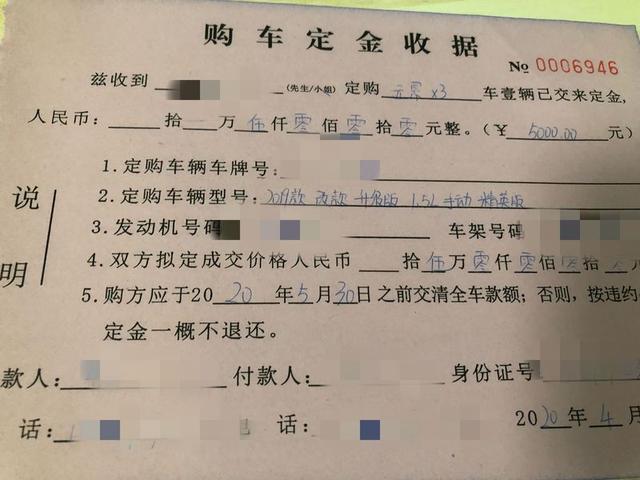 购车定金收据
№ 0006946
兹收到 (先生/小姐) 定购 元景x3 车壹辆已交来定金,
人民币: 拾 万 伍 仟 零 佰 零 拾 零 元整。(¥ 5000.00 元)
说明
1.定购车辆车牌号:
2.定购车辆型号: 2019款 改款 升级版 1.5L 手动 精英版
3.发动机号码 车架号码
4.双方拟定成交价格人民币 拾 伍 万 零 仟 零 佰 拾
5.购方应于20 20 年 5 月 30 日之前交清全车款额;否则,按违约
定金一概不退还。
款人: 付款人: 身份证号
话: 话: 2020 年 4 月